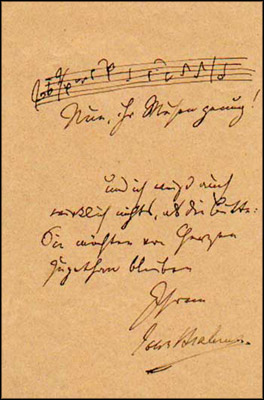 Nun, ihr Musen, genug!
und ich weiß auch
wirklich nichts, als die Bitte:
Sie möchten von Herzen
zugethan bleiben
Ihrem
Joh. Brahms.